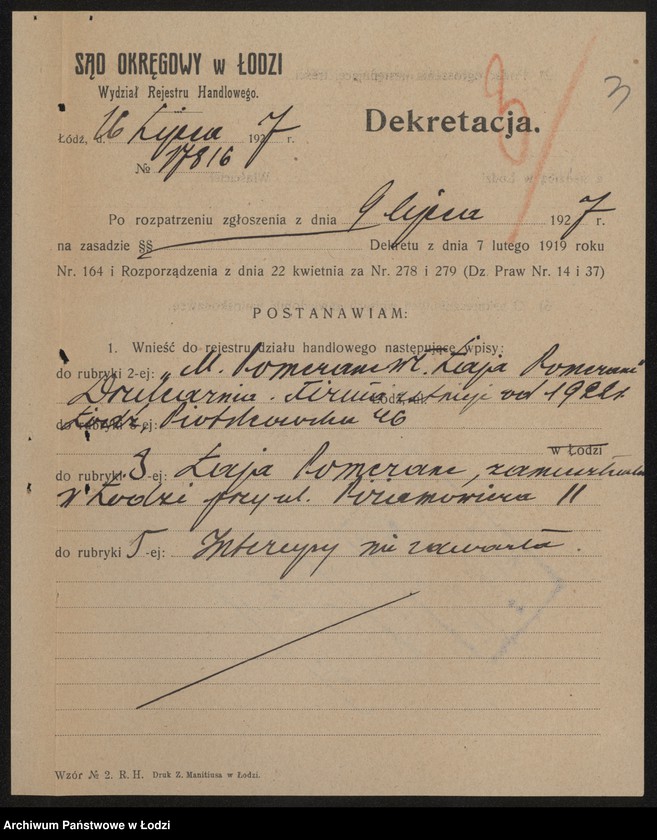 SĄD OKRĘGOWY w ŁODZI
Wydział Rejestru Handlowego.
Łódź, d. 16 Lipca 1927 r.
№ 17816
3
3
Dekretacja.
Po rozpatrzeniu zgłoszenia z dnia 9 lipca 1927 r.
na zasadzie §§ Dekretu z dnia 7 lutego 1919 roku
Nr. 164 i Rozporządzenia z dnia 22 kwietnia za Nr. 278 i 279 (Dz. Praw Nr. 14 i 37)
POSTANAWIAM:
1. Wnieść do rejestru działu handlowego następujące wpisy:
do rubryki 2-ej: „M. Pomeranc wł. Łaja Pomeranc"
Drukarnia. Firma istnieje od 1922 r.
Łódź, Piotrkowska 46
w Łodzi
do rubryki 3-ej: Łaja Pomeranc, zamieszkała
w Łodzi przy ul. 11
do rubryki 5-ej: Intercyzy nie zawarła.
Wzór № 2. R. H. Druk Z. Manitiusa w Łodzi.
Archiwum Państwowe w Łodzi